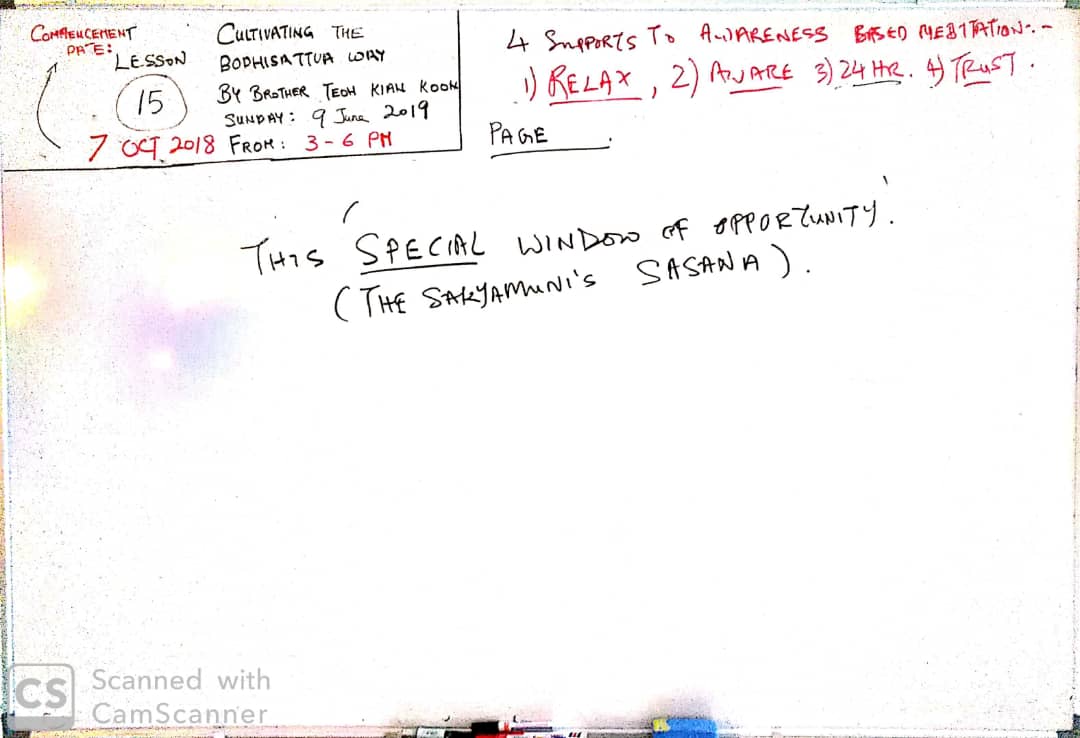 COMMENCEMENT
DATE:
LESSON
15
7 OCT 2018
CULTIVATING THE
BODHISATTVA WAY
BY BROTHER TEOH KIAN KOON
SUNDAY: 9 June 2019
FROM: 3-6 PM
4 SUPPORTS TO AWARENESS BASED MEDITATION:-
1) RELAX, 2) AWARE 3) 24 HR. 4) TRUST.
PAGE :
THIS 'SPECIAL WINDOW OF OPPORTUNITY'.
(THE SAKYAMUNI'S SASANA).
CS Scanned with
CamScanner